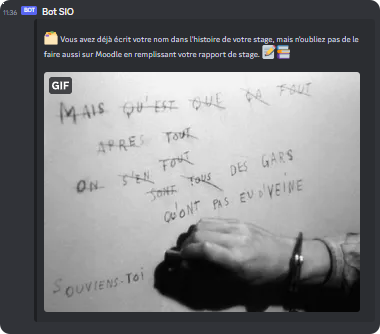 11:36 BOT Bot SIO
Vous avez déjà écrit votre nom dans l'histoire de votre stage, mais n'oubliez pas de le
faire aussi sur Moodle en remplissant votre rapport de stage.
GIF
MAIS QU'EST QUE ÇA FOUT
APRES TOUT
TOUT
ON S'EN TOUS DES GARS
SONT
QU'ONT PAS EU D'VEINE
SOUVIENS-TOI